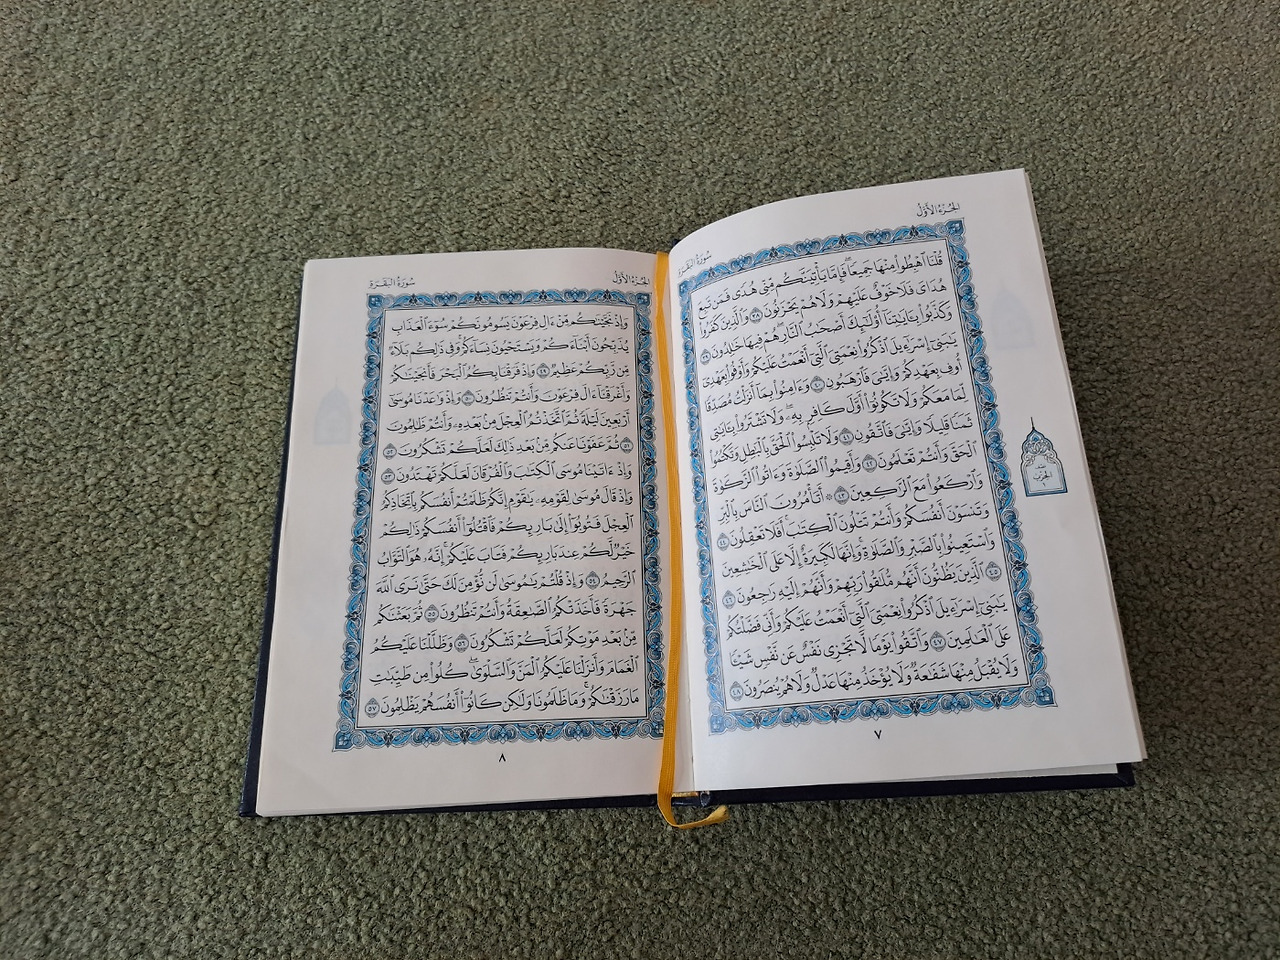 الجزء الأول
سورة البقرة
قُلْنَا ٱهْبِطُوا۟ مِنْهَا جَمِيعًا ۖ فَإِمَّا يَأْتِيَنَّكُم مِّنِّى هُدًى فَمَن تَبِعَ
هُدَاىَ فَلَا خَوْفٌ عَلَيْهِمْ وَلَا هُمْ يَحْزَنُونَ ٣٨ وَٱلَّذِينَ كَفَرُوا۟
وَكَذَّبُوا۟ بِـَٔايَـٰتِنَآ أُو۟لَـٰٓئِكَ أَصْحَـٰبُ ٱلنَّارِ ۖ هُمْ فِيهَا خَـٰلِدُونَ ٣٩
يَـٰبَنِىٓ إِسْرَٰٓءِيلَ ٱذْكُرُوا۟ نِعْمَتِىَ ٱلَّتِىٓ أَنْعَمْتُ عَلَيْكُمْ وَأَوْفُوا۟ بِعَهْدِىٓ
أُوفِ بِعَهْدِكُمْ وَإِيَّـٰىَ فَٱرْهَبُونِ ٤٠ وَءَامِنُوا۟ بِمَآ أَنزَلْتُ مُصَدِّقًا
لِّمَا مَعَكُمْ وَلَا تَكُونُوٓا۟ أَوَّلَ كَافِرٍۭ بِهِۦ ۖ وَلَا تَشْتَرُوا۟ بِـَٔايَـٰتِى
ثَمَنًا قَلِيلًا وَإِيَّـٰىَ فَٱتَّقُونِ ٤١ وَلَا تَلْبِسُوا۟ ٱلْحَقَّ بِٱلْبَـٰطِلِ وَتَكْتُمُوا۟
ٱلْحَقَّ وَأَنتُمْ تَعْلَمُونَ ٤٢ وَأَقِيمُوا۟ ٱلصَّلَوٰةَ وَءَاتُوا۟ ٱلزَّكَوٰةَ
وَٱرْكَعُوا۟ مَعَ ٱلرَّٰكِعِينَ ٤٣ ۞ أَتَأْمُرُونَ ٱلنَّاسَ بِٱلْبِرِّ
وَتَنسَوْنَ أَنفُسَكُمْ وَأَنتُمْ تَتْلُونَ ٱلْكِتَـٰبَ ۚ أَفَلَا تَعْقِلُونَ ٤٤
وَٱسْتَعِينُوا۟ بِٱلصَّبْرِ وَٱلصَّلَوٰةِ ۚ وَإِنَّهَا لَكَبِيرَةٌ إِلَّا عَلَى ٱلْخَـٰشِعِينَ
٤٥ ٱلَّذِينَ يَظُنُّونَ أَنَّهُم مُّلَـٰقُوا۟ رَبِّهِمْ وَأَنَّهُمْ إِلَيْهِ رَٰجِعُونَ ٤٦
يَـٰبَنِىٓ إِسْرَٰٓءِيلَ ٱذْكُرُوا۟ نِعْمَتِىَ ٱلَّتِىٓ أَنْعَمْتُ عَلَيْكُمْ وَأَنِّى فَضَّلْتُكُمْ
عَلَى ٱلْعَـٰلَمِينَ ٤٧ وَٱتَّقُوا۟ يَوْمًا لَّا تَجْزِى نَفْسٌ عَن نَّفْسٍ شَيْـًٔا
وَلَا يُقْبَلُ مِنْهَا شَفَـٰعَةٌ وَلَا يُؤْخَذُ مِنْهَا عَدْلٌ وَلَا هُمْ يُنصَرُونَ ٤٨
نصف
الحزب
٧
الجزء الأول
سورة البقرة
وَإِذْ نَجَّيْنَـٰكُم مِّنْ ءَالِ فِرْعَوْنَ يَسُومُونَكُمْ سُوٓءَ ٱلْعَذَابِ
يُذَبِّحُونَ أَبْنَآءَكُمْ وَيَسْتَحْيُونَ نِسَآءَكُمْ ۚ وَفِى ذَٰلِكُم بَلَآءٌ
مِّن رَّبِّكُمْ عَظِيمٌ ٤٩ وَإِذْ فَرَقْنَا بِكُمُ ٱلْبَحْرَ فَأَنجَيْنَـٰكُمْ
وَأَغْرَقْنَآ ءَالَ فِرْعَوْنَ وَأَنتُمْ تَنظُرُونَ ٥٠ وَإِذْ وَٰعَدْنَا مُوسَىٰٓ
أَرْبَعِينَ لَيْلَةً ثُمَّ ٱتَّخَذْتُمُ ٱلْعِجْلَ مِنۢ بَعْدِهِۦ وَأَنتُمْ ظَـٰلِمُونَ
٥١ ثُمَّ عَفَوْنَا عَنكُم مِّنۢ بَعْدِ ذَٰلِكَ لَعَلَّكُمْ تَشْكُرُونَ ٥٢
وَإِذْ ءَاتَيْنَا مُوسَى ٱلْكِتَـٰبَ وَٱلْفُرْقَانَ لَعَلَّكُمْ تَهْتَدُونَ ٥٣
وَإِذْ قَالَ مُوسَىٰ لِقَوْمِهِۦ يَـٰقَوْمِ إِنَّكُمْ ظَلَمْتُمْ أَنفُسَكُم بِٱتِّخَاذِكُمُ
ٱلْعِجْلَ فَتُوبُوٓا۟ إِلَىٰ بَارِئِكُمْ فَٱقْتُلُوٓا۟ أَنفُسَكُمْ ذَٰلِكُمْ
خَيْرٌ لَّكُمْ عِندَ بَارِئِكُمْ فَتَابَ عَلَيْكُمْ ۚ إِنَّهُۥ هُوَ ٱلتَّوَّابُ
ٱلرَّحِيمُ ٥٤ وَإِذْ قُلْتُمْ يَـٰمُوسَىٰ لَن نُّؤْمِنَ لَكَ حَتَّىٰ نَرَى ٱللَّهَ
جَهْرَةً فَأَخَذَتْكُمُ ٱلصَّـٰعِقَةُ وَأَنتُمْ تَنظُرُونَ ٥٥ ثُمَّ بَعَثْنَـٰكُم
مِّنۢ بَعْدِ مَوْتِكُمْ لَعَلَّكُمْ تَشْكُرُونَ ٥٦ وَظَلَّلْنَا عَلَيْكُمُ
ٱلْغَمَامَ وَأَنزَلْنَا عَلَيْكُمُ ٱلْمَنَّ وَٱلسَّلْوَىٰ ۖ كُلُوا۟ مِن طَيِّبَـٰتِ
مَا رَزَقْنَـٰكُمْ ۖ وَمَا ظَلَمُونَا وَلَـٰكِن كَانُوٓا۟ أَنفُسَهُمْ يَظْلِمُونَ ٥٧
٨